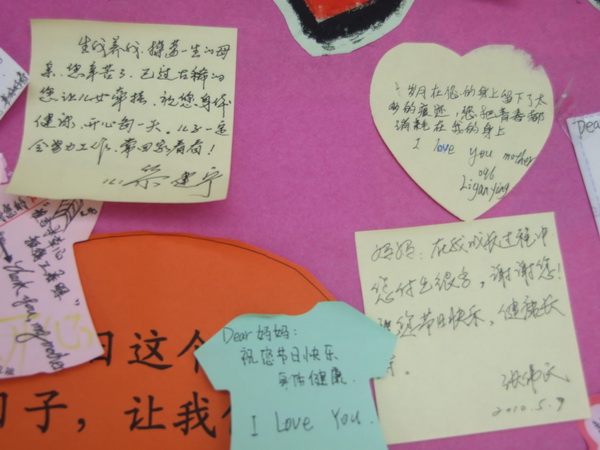 生我养我、操劳一生的母
亲,您辛苦了,已过古稀的
您让儿女牵挂,祝您身体
健康,开心每一天。儿子一定
会努力工作,常回家看看!
儿
岁月在您的身上留下了太
多的痕迹,您把青春都
消耗在我的身上
I love you mother
096
Liganying
妈妈:在我成长过程中
您付出很多,谢谢您!
祝您节日快乐,健康长
寿。
2010.5.9
Dear妈妈:
祝您节日快乐
身体健康.
I Love You.
Thank you my mother
日这个
日子,让我们
"Dear